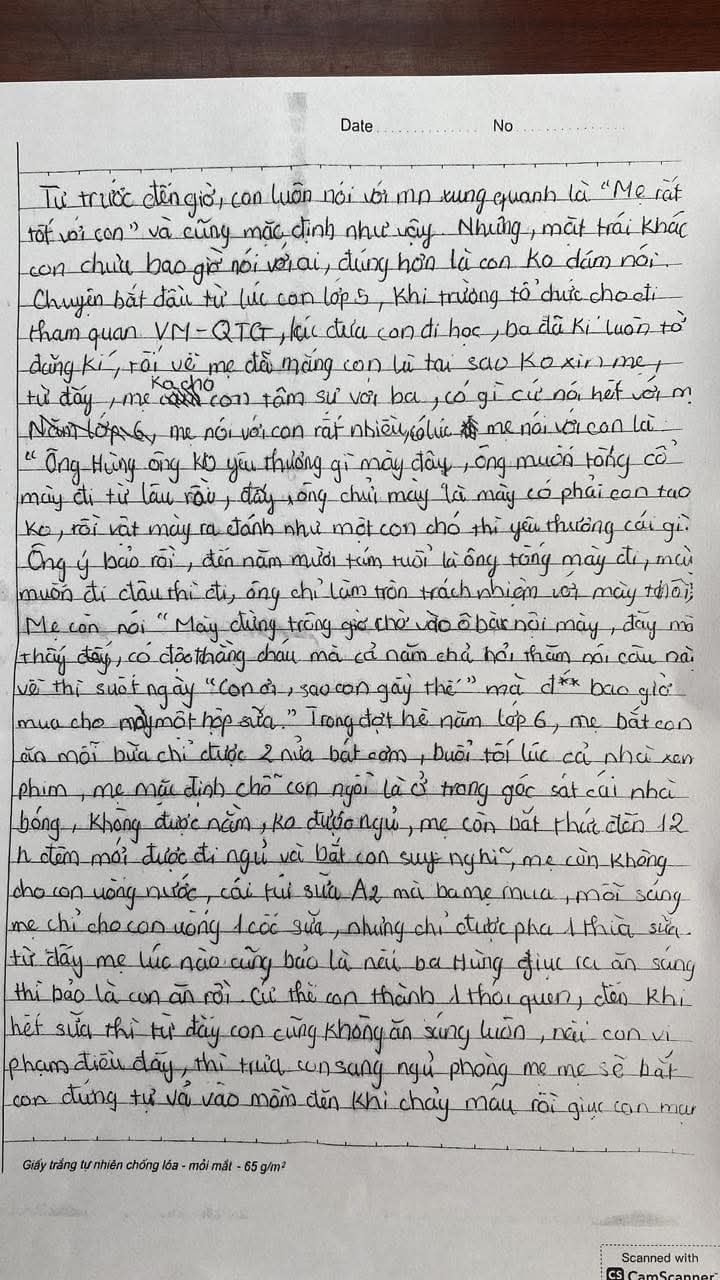 Date No
Từ trước đến giờ, con luôn nói với mn xung quanh là "Mẹ rất
tốt với con" và cũng mặc định như vậy. Nhưng, mặt trái khác
con chưa bao giờ nói với ai, đúng hơn là con ko dám nói.
Chuyện bắt đầu từ lúc con lớp 5, khi trường tổ chức cho đi
tham quan VM-QTG, lúc đưa con đi học, ba đã kí luôn tờ
đăng kí, rồi về mẹ đã mắng con là tại sao ko xin mẹ,
từ đấy, mẹ ko cho con tâm sự với ba, có gì cứ nói hết với m
Năm lớp 6, mẹ nói với con rất nhiều, có lúc mẹ nói với con là:
"Ông Hùng ông ko yêu thương gì mày đây, ông muốn tống cổ
mày đi từ lâu rồi, đấy, ông chửi mày là mày có phải con tao
ko, rồi vật mày ra đánh như một con chó thì yêu thương cái gì.
Ông ý bảo rồi, đến năm mười tám tuổi là ông tống mày đi, mày
muốn đi đâu thì đi, ông chỉ làm tròn trách nhiệm với mày thôi"
Mẹ còn nói "Mày đừng trông giờ chờ vào ô bà nội mày, đấy mà
thấy đấy, có độc thằng cháu mà cả năm chả hỏi thăm nói câu nà
về thì suốt ngày "con ơi, sao con gầy thế" mà đ** bao giờ
mua cho mày một hộp sữa." Trong đợt hè năm lớp 6, mẹ bắt con
ăn mỗi bữa chỉ được 2 nửa bát cơm, buổi tối lúc cả nhà xem
phim, mẹ mặc định chỗ con ngồi là ở trong góc sát cái nhà
bóng, không được nằm, ko được ngủ, mẹ còn bắt thức đến 12
h đêm mới được đi ngủ và bắt con suy nghĩ, mẹ còn không
cho con uống nước, cái túi sữa A2 mà ba mẹ mua, mỗi sáng
mẹ chỉ cho con uống 1 cốc sữa, nhưng chỉ được pha 1 thìa sữa.
từ đấy mẹ lúc nào cũng bảo là nếu ba Hùng giục ra ăn sáng
thì bảo là con ăn rồi. Cứ thế con thành 1 thói quen, đến khi
hết sữa thì từ đấy con cũng không ăn sáng luôn, nếu con vi
phạm điều đấy, thì trưa con sang ngủ phòng mẹ mẹ sẽ bắt
con đứng tự vả vào mồm đến khi chảy máu rồi giục con mau
Giấy trắng tự nhiên chống lóa - mỏi mắt - 65 g/m²
Scanned with
CS CamScanner